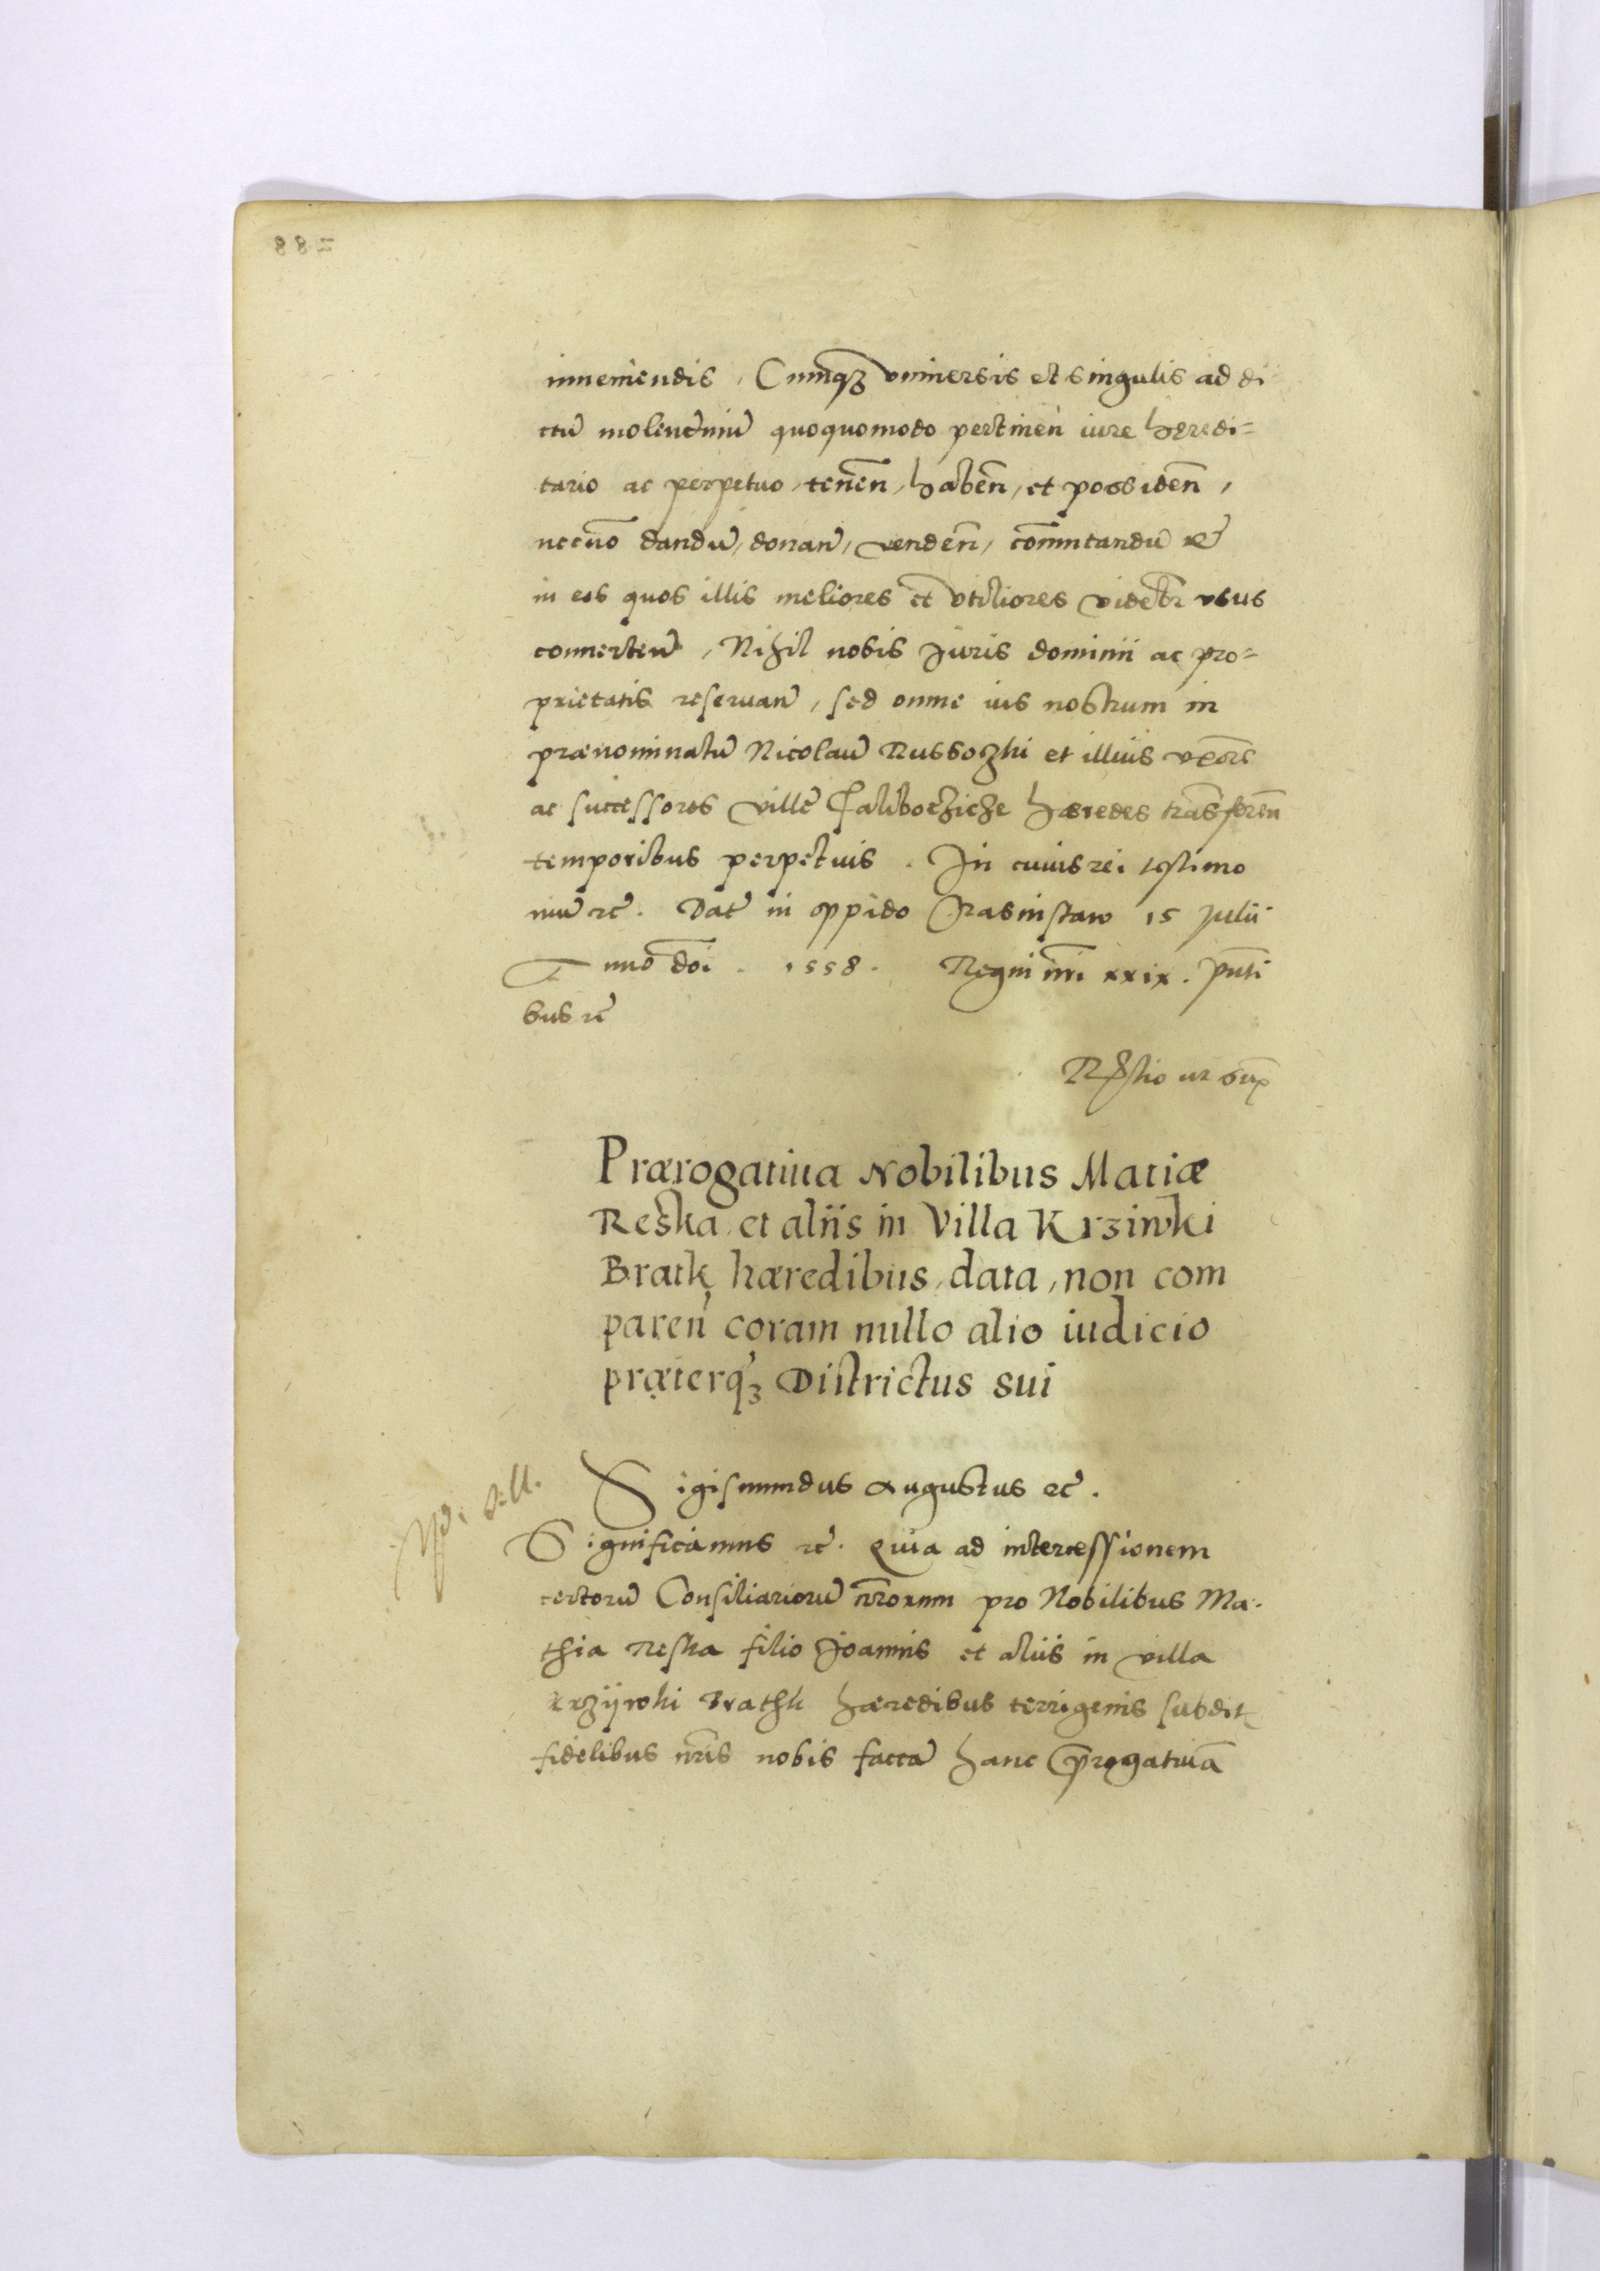 inueniendis, Cumq₃ vniuersis et singulis ad di
ctū molendinū quoquomodo pertinen̄ iure heredi=
tario ac perpetuo, tenēn, habēn, et possidēn,
necnō dandū, donan̄, vendēn, com̄utandū &
in eos quos illis meliores et vtiliores videbr̄ vsus
conuerten̄, Nihil nobis Juris dominii ac pro=
prietatis reseruan̄, sed omne ius nostrum in
prænominatū Nicolaū Russozhi et illius vxorē
ac successores villę Caliboezicze hæredes trāsferēn
temporibus perpetuis. In cuius rei testimo
niū rc̄. Dat̄ in oppido Crasinstaw 15 Julii
Anno dn̄i. 1558. Regni nr̄i xxix. pn̄ti
bus rc̄
ut sup̄
Prærogatiua Nobilibus Matiæ
Reska et aliis in Villa Krziwki
Bratk hæredibus, data, non com
paren̄ coram nullo alio iudicio
præterq₃ Districtus sui
Sigismundus Augustus rc̄.
Significamus rc̄. Quia ad intercessionem
certorū Consiliariorū nr̄orum pro Nobilibus Ma-
thia Reska filio Joannis et aliis in villa
Krzijwki Brathk hæredibus terrigenis subdit
fidelibus nr̄is nobis factā hanc p̄rogatiuā